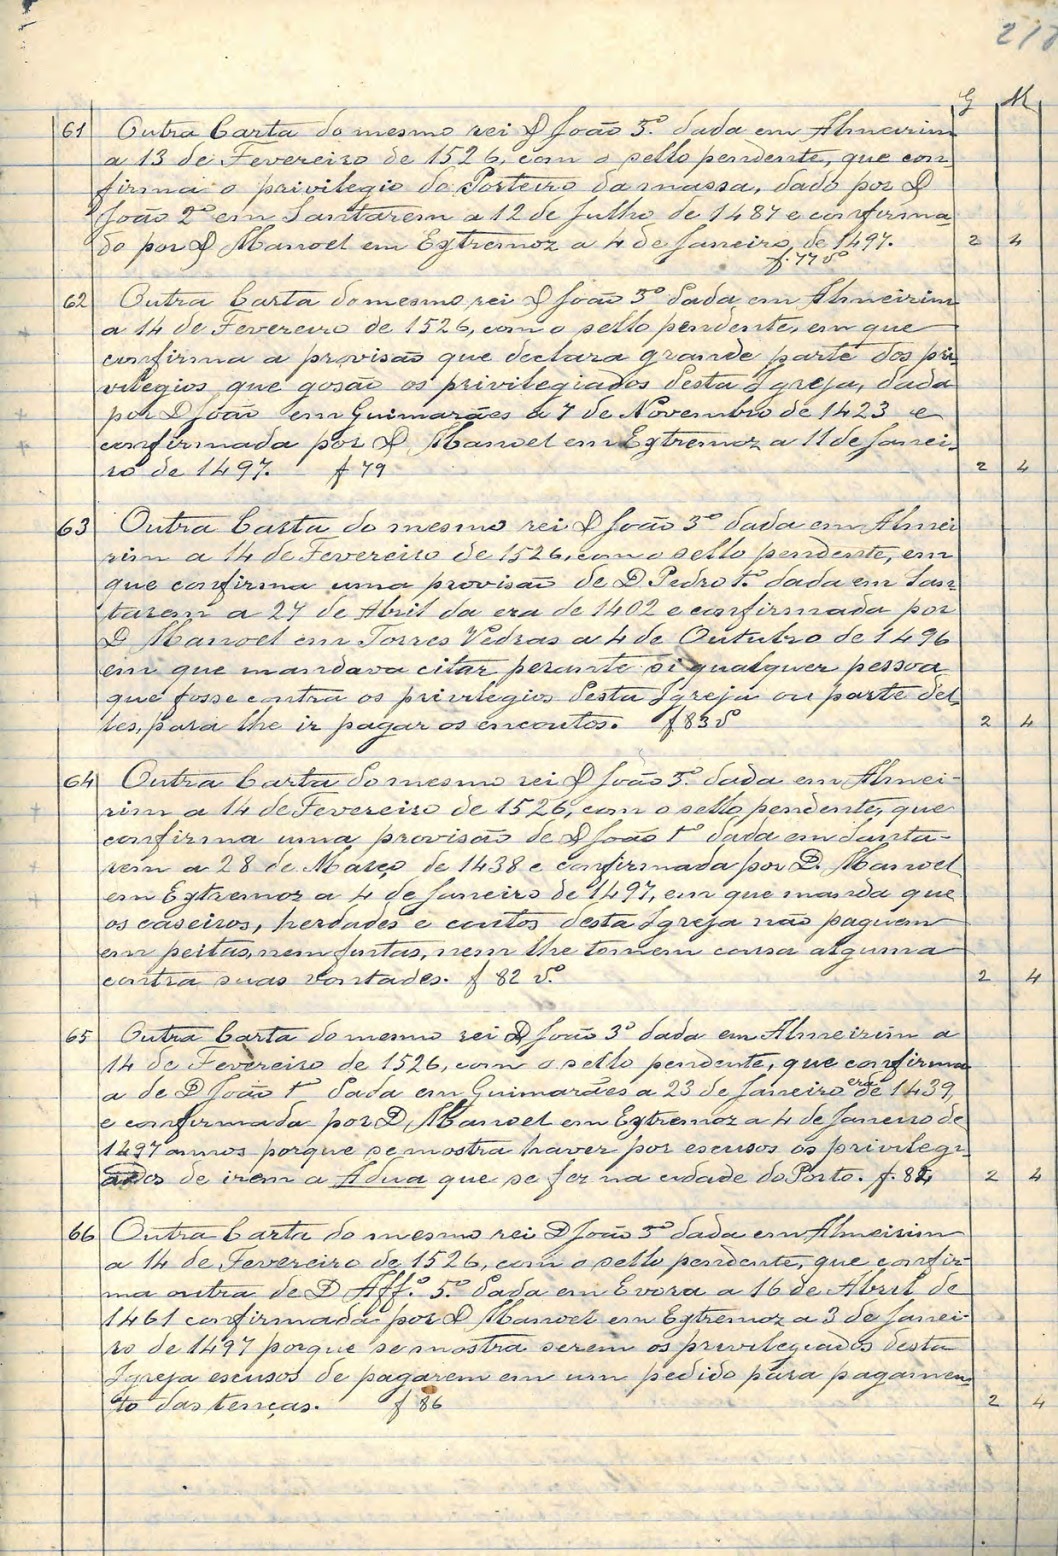 G M
61 Outra Carta do mesmo rei D João 3.º dada em Almeirim
a 13 de Fevereiro de 1526, com o sello pendente, que con-
firma o privilegio do Porteiro da massa, dado por D
João 2º em Santarem a 12 de Julho de 1487 e confirma-
do por D Manoel em Extremoz a 4 de Janeiro de 1497. 2 4
f. 77 vº
62 Outra Carta do mesmo rei D João 3º dada em Almeirim
a 14 de Fevereiro de 1526, com o sello pendente, em que
confirma a provisão que declara grande parte dos pri-
vilegios que gosão os privilegiados desta Igreja, dada
por D João em Guimarães a 7 de Novembro de 1423 e
confirmada por D Manoel em Extremoz a 11 de Janei-
ro de 1497. f 79 2 4
63 Outra Carta do mesmo rei D João 3º dada em Almei
rim a 14 de Fevereiro de 1526, com o sello pendente, em
que confirma uma provisão de D Pedro 1.º dada em San-
tarem a 27 de Abril da era de 1402 e confirmada por
D Manoel em Torres Vedras a 4 de Outubro de 1496
em que mandava citar perante si qualquer pessoa
que fosse contra os privilegios desta Igreja ou parte del-
les, para lhe ir pagar os encoutos. f. 83 vº 2 4
64 Outra Carta do mesmo rei D João 3º. dada em Almei-
rim a 14 de Fevereiro de 1526, com o sello pendente, que
confirma uma provisão de D João 1º dada em Santa-
rem a 28 de Março de 1438 e confirmada por D. Manoel
em Extremoz a 4 de Janeiro de 1497, em que manda que
os caseiros, herdades e coutos desta Igreja não paguem
em peitas, nem fintas, nem lhe tomem cousa alguma
contra suas vontades. f 82 v.º 2 4
65 Outra Carta do mesmo rei D João 3º dada em Almeirim a
14 de Fevereiro de 1526, com o sello pendente, que confirma
a de D João 1º dada em Guimarães a 23 de Janeiro era de 1439,
e confirmada por D, Manoel em Extremoz a 4 de Janeiro de
1497 annos porque se mostra haver por escusos os privilegi-
ados de irem a Adua que se fez na cidade do Porto. f. 84 2 4
66 Outra Carta do mesmo rei D João 3º dada em Almeirim
a 14 de Fevereiro de 1526, com o sello pendente, que confir-
ma outra de D Aff.º 5.º dada em Evora a 16 de Abril de
1461 confirmada por D Manoel em Extremoz a 3 de Janei-
ro de 1497 porque se mostra serem os privilegiados desta
Igreja escusos de pagarem em um pedido para pagamen-
to das tenças. f 86 2 4